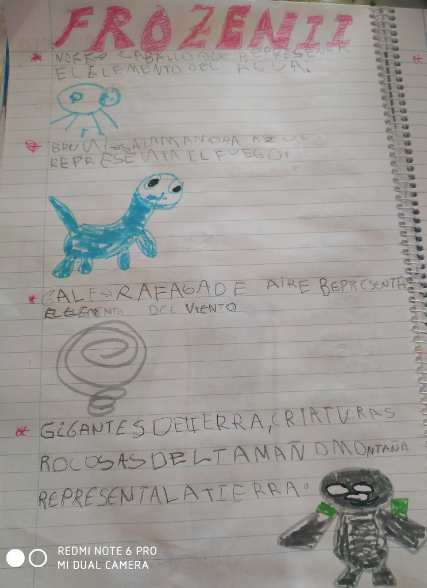 FROZEN II
NOKK= CABALLO QUE REPRESENTA
EL ELEMENTO DEL AGUA.
BRUNI= SALAMANDRA AZUL
REPRESENTA EL FUEGO.
GALE= RAFAGA DE AIRE REPRESENTA
EL ELEMENTO DEL VIENTO
GIGANTES DE TIERRA, CRIATURAS
ROCOSAS DEL TAMAÑO MONTAÑA
REPRESENTA LA TIERRA.
REDMI NOTE 6 PRO
MI DUAL CAMERA